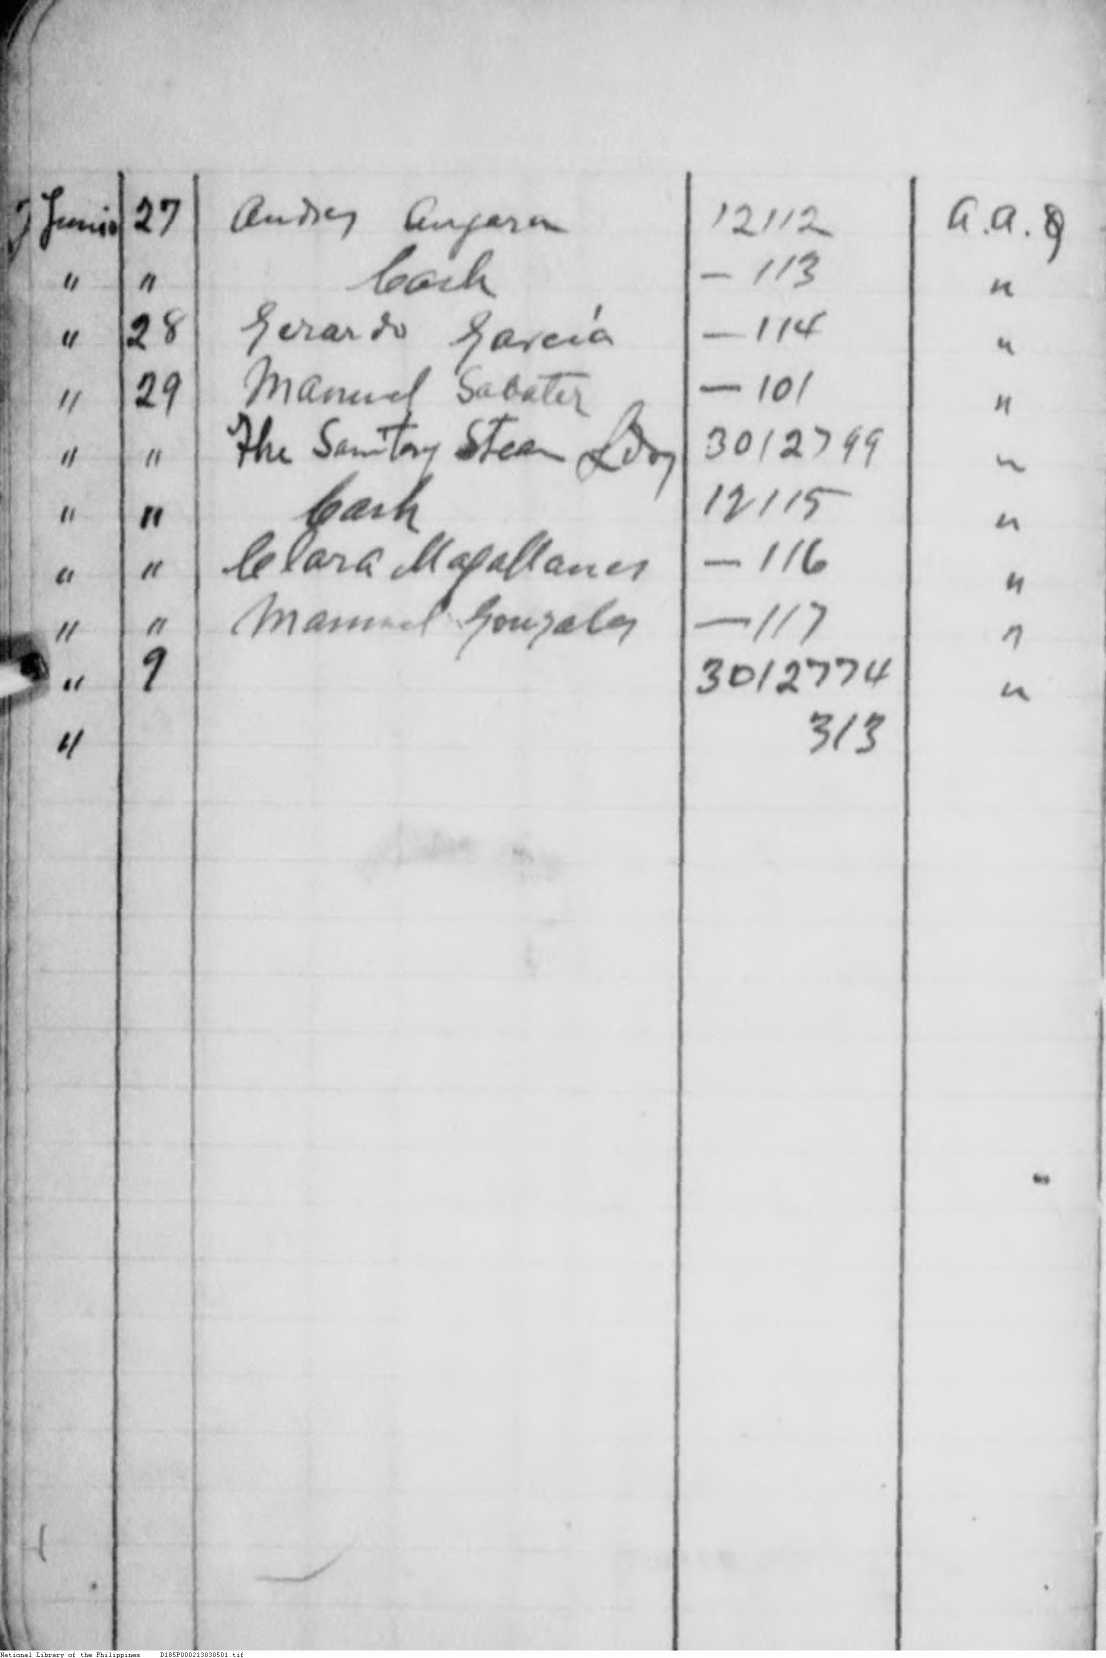 Junio 27 Andres Angara 12112 A.A.Q
" " Cash — 113 "
" 28 Gerardo García — 114 "
" 29 Manuel Sabater — 101 "
" " The Sanitary Steam Ldry 3012799 "
" " Cash 12115 "
" " Clara Magallanes — 116 "
" " Manuel Gonzales — 117 "
" 9 3012774 "
" 313
National Library of the Philippines D185P000213030501.tif